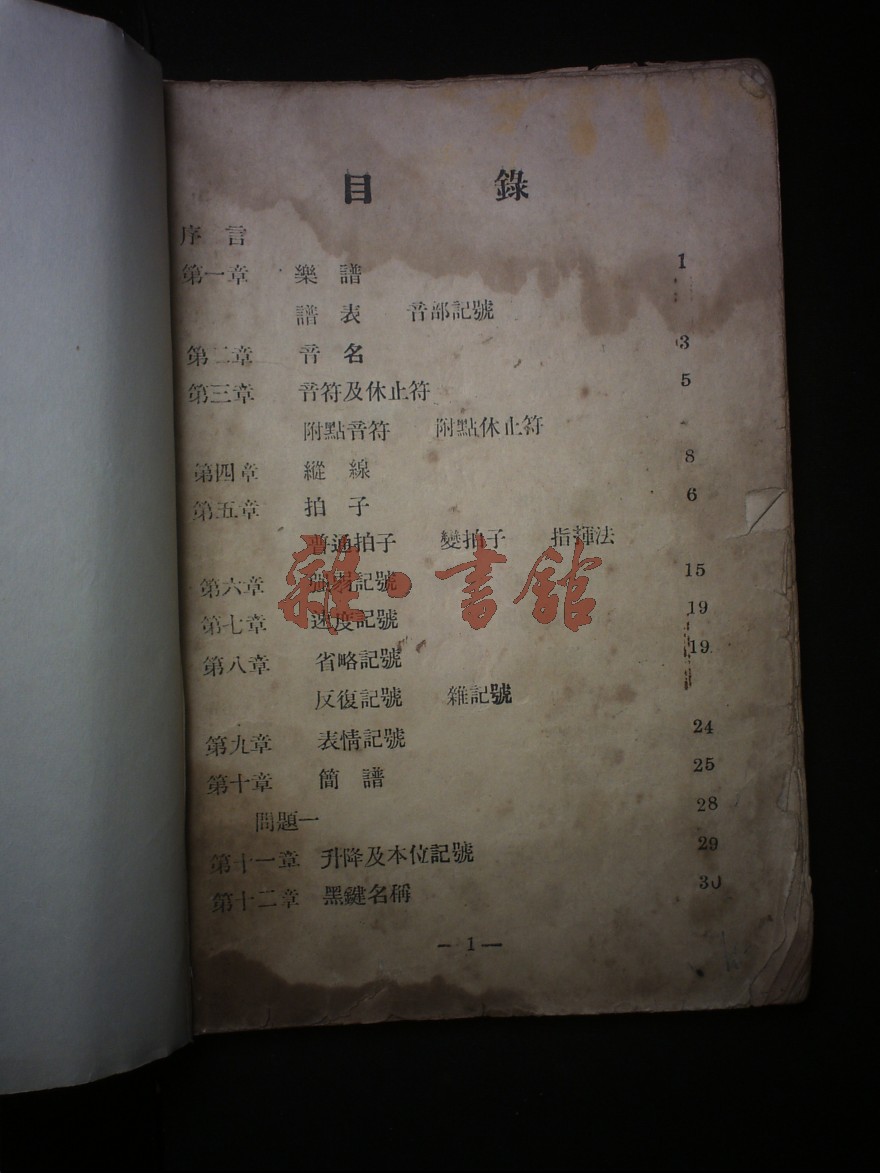 目 錄
序 言
第一章 樂 譜 1
譜 表 音部記號
第二章 音 名 3
第三章 音符及休止符 5
附點音符 附點休止符
第四章 縱 線 8
第五章 拍 子 6
普通拍子 變拍子 指揮法
第六章 強弱記號 15
第七章 速度記號 19
第八章 省略記號 19
反復記號 雜記號
第九章 表情記號 24
第十章 簡 譜 25
問題一 28
第十一章 升降及本位記號 29
第十二章 黑鍵名稱 30
— 1 —
雜·書館